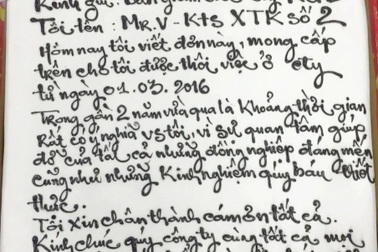 Kính gửi: Ban giám
Tôi tên: MR.V - KTS XTK Số 2
Hôm nay tôi viết đơn này, mong cấp
trên cho tôi được thôi việc ở cty
từ ngày 01.03.2016
Trong gần 2 năm vừa qua là khoảng thời gian
Rất có ý nghĩa vs tôi, vì sự quan tâm giúp
đỡ của tất cả những đồng nghiệp đáng mến
cũng như những kinh nghiệm quý báu, thiết
thực.
Tôi xin chân thành cám ơn tất cả.
Kính chúc quý công ty cùng tất cả mọi